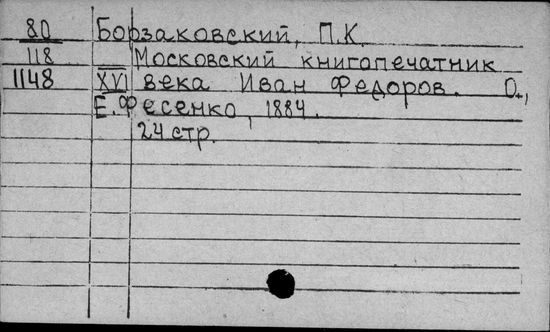 80 Борзаковский, П.К.
118 Московский книгопечатник
1148 XVI века Иван Федоров. О.,
Е. Фесенко, 1884.
24 стр.